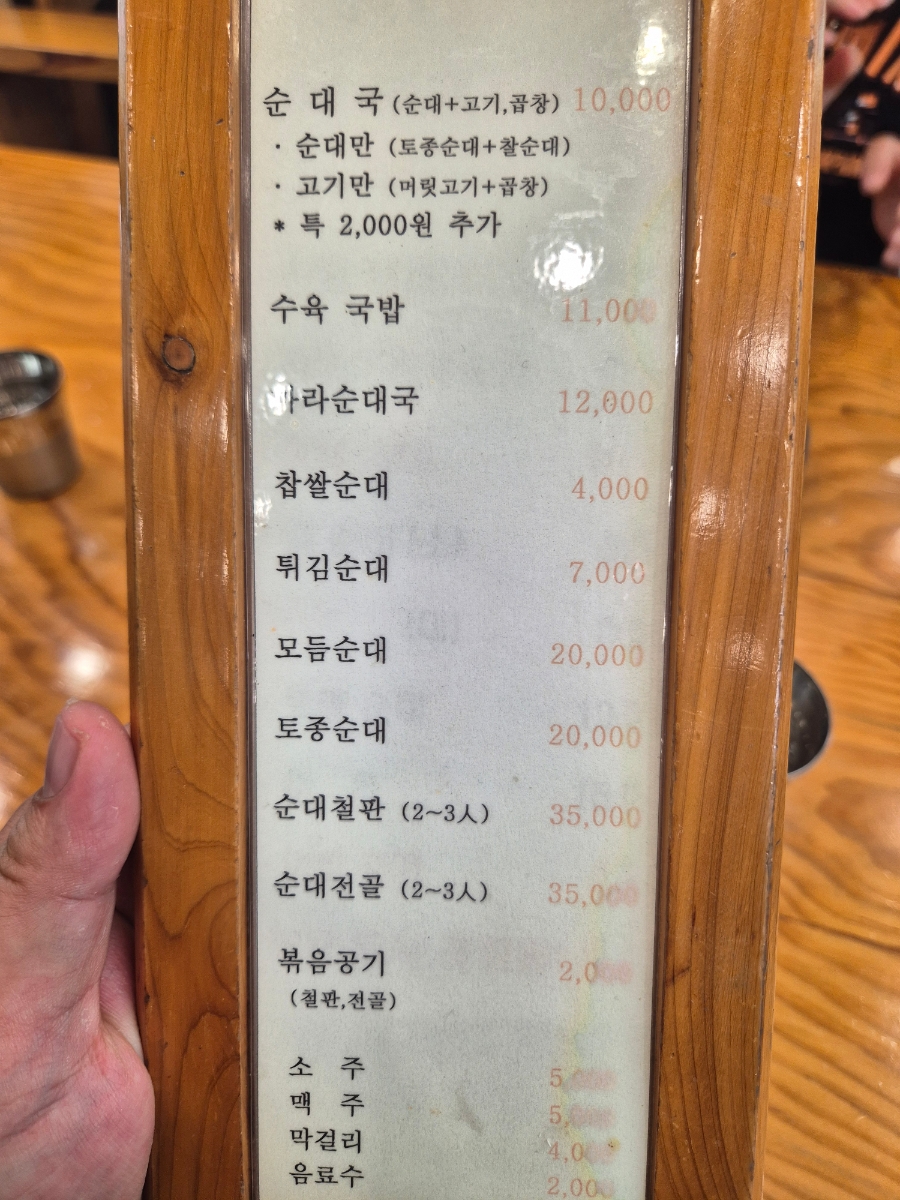 순 대 국 (순대+고기,곱창) 10,000
· 순대만 (토종순대+찰순대)
· 고기만 (머릿고기+곱창)
* 특 2,000원 추가
수육 국밥 11,000
12,000
찹쌀순대 4,000
튀김순대 7,000
모듬순대 20,000
토종순대 20,000
순대철판 (2~3人) 35,000
순대전골 (2~3人) 35,000
볶음공기 2,000
(철판,전골)
소 주 5,000
맥 주 5,000
막걸리 4,000
음료수 2,000